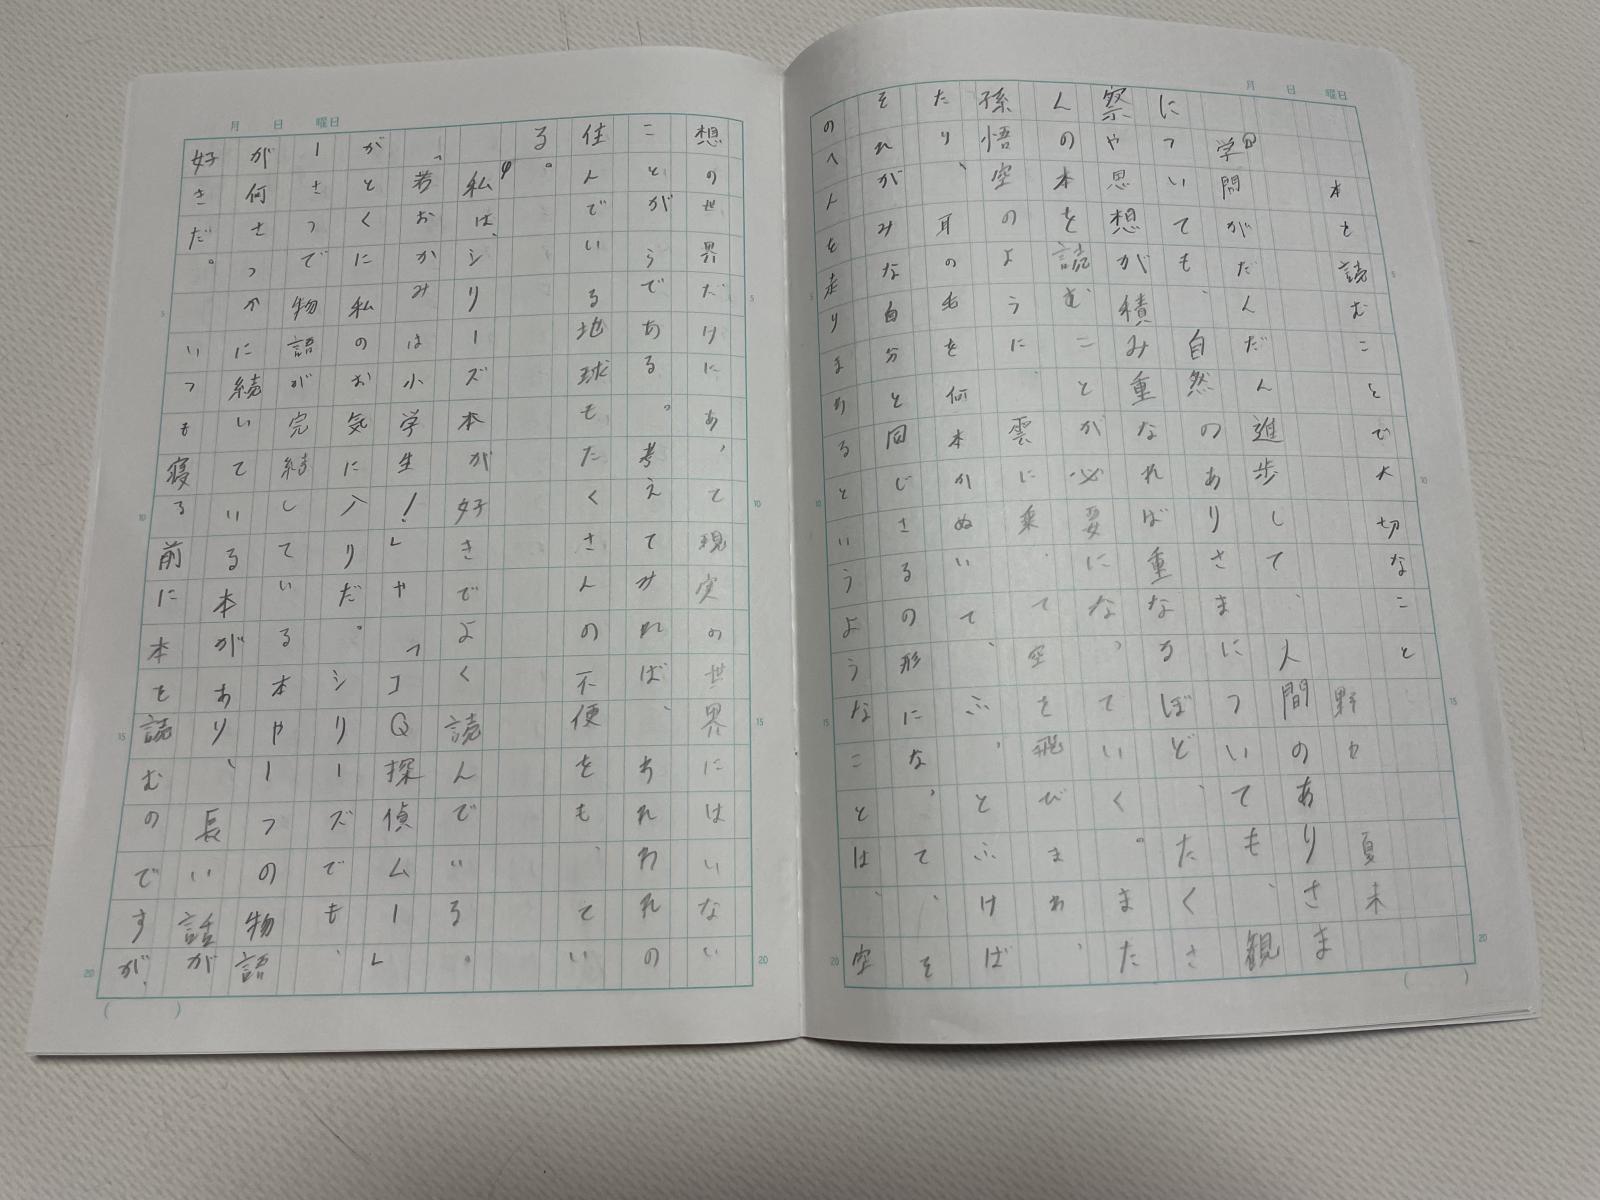 月 日 曜日
本を読むことで大切なこと
野 夏未
学問がだんだん進歩して、人間のありさま
についても、自然のありさまについても、観
察や思想が積み重なれば重なるほど、たくさ
んの本を読むことが必要になっていく。また、
孫悟空のように、雲に乗って空を飛びまわっ
たり、耳の毛を何本かぬいて、ふっとふけば、
それがみな自分と同じさるの形になって、そ
のへんを走りまわるというようなことは、空
月 日 曜日
想の世界だけにあって現実の世界にはいない
ことがらである。考えてみれば、われわれの
住んでいる地球もたくさんの不便をもってい
る。
私は、シリーズ本が好きでよく読んでいる。
「若おかみは小学生!」や「IQ探偵ムー」
がとくに私のお気に入りだ。シリーズでも、
1さつで物語が完結している本や1つの物語
が何さつかに続いている本があり、長い話が
好きだ。いつも寝る前に本を読むのですが、